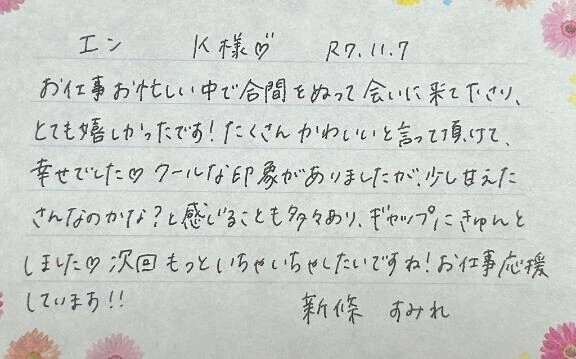 エン K様♡ R7.11.7
お仕事お忙しい中で合間をぬって会いに来て下さり、
とても嬉しかったです!たくさんかわいいと言って頂けて、
幸せでした♡クールな印象がありましたが、少し甘えた
さんなのかな?と感じることも多々あり、ギャップにきゅんと
しました♡次回もっといちゃいちゃしたいですね!お仕事応援
しています!!
新條 すみれ